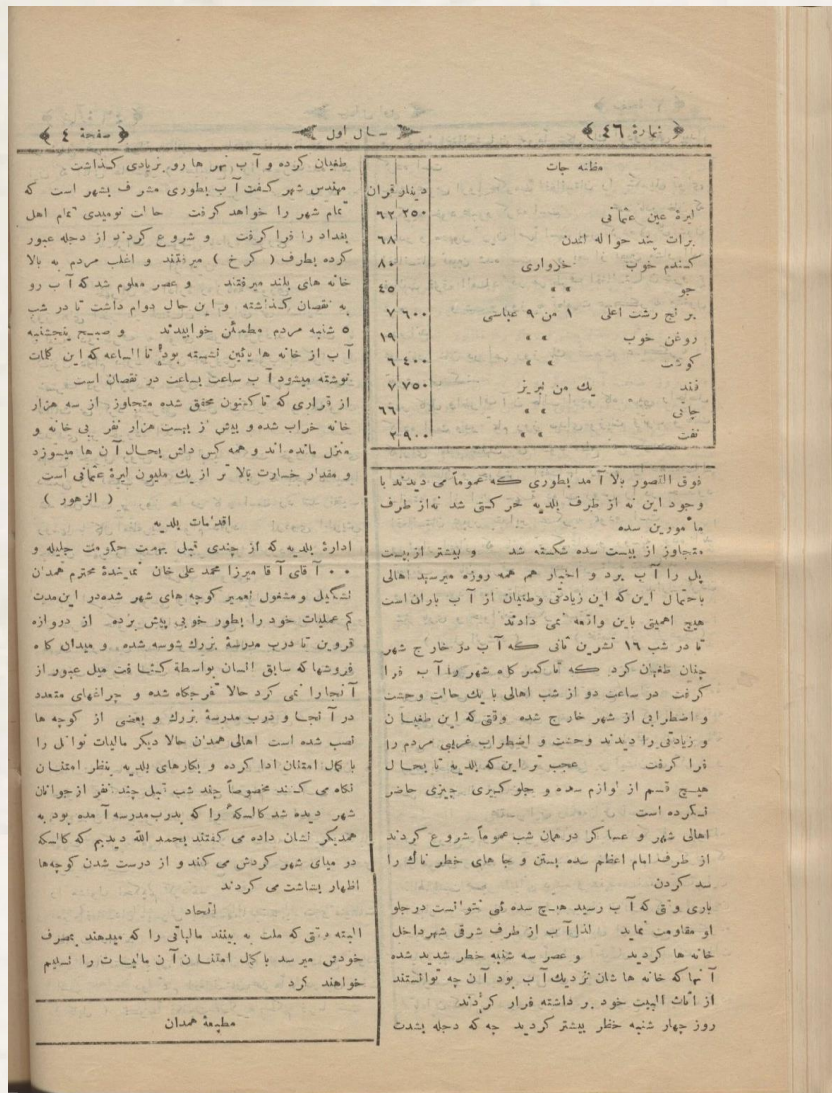 نمارهٔ ٤٦
سال اول
صفحهٔ ٤
مظنه جات
دینار قران
لیرهٔ عین عثمانی ٢٥٠ ٦٢
برات پند حواله لندن ٦٨
کندم خوب خرواری ٨٠
جو » » ٤٥
برنج رشت اعلی ١ من ٩ عباسی ٦٠٠ ٧
روغن خوب » » ١٩
کوشت » » ٤٠٠ ٦
قند یك من تبریز ٧٥٠ ٧
چائی » » ٦٦
نفت » » ٩٠٠ ٢
فوق التصور بالا آمد بطوری که عموماً می دیدند با
وجود این نه از طرف بلدیه حرکتی شد نه از طرف
مأمورین سده
متجاوز از بیست سده شکسته شد و بیشتر از بیست
پل را آب برد و اخبار هم همه روزه میرسید اهالی
باحتمال این که این زیادتی وطغیان از آب باران است
هیچ اهمیتی باین واقعه نمی دادند
تا در شب ١٦ تشرین ثانی که آب در خارج شهر
چنان طغیان کرد که تا کمرکاه شهر را آب فرا
کرفت در ساعت دو از شب اهالی با یك حالت وحشت
و اضطرابی از شهر خارج شده وقتی که این طغیان
و زیادتی را دیدند وحشت و اضطراب غریبی مردم را
فرا کرفت عجب تر این که بلدیه تا بحال
هیچ قسم از لوازم سده و جلو کیری چیزی حاضر
نکرده است
اهالی شهر و عساکر در همان شب عموماً شروع کردند
از طرف امام اعظم سده بستن و جا های خطر ناك را
سد کردن
باری وقتی که آب رسید هیچ سده نمی توانست در جلو
او مقاومت نماید لذا آب از طرف شرقی شهر داخل
خانه ها کردید و عصر سه شنبه خطر شدید شده
آنها که خانه ها شان نزدیك آب بود آن چه توانستند
از اثاث البیت خود بر داشته فرار کردند
روز چهار شنبه خطر بیشتر کردید چه که دجله بشدت
طغیان کرده و آب نهر ها رو بزیادی کذاشت
مهندس شهر کفت آب بطوری مشرف بشهر است که
تمام شهر را خواهد کرفت حالت نومیدی تمام اهل
بغداد را فرا کرفت و شروع کردند از دجله عبور
کرده بطرف ( کرخ ) میرفتند و اغلب مردم به بالا
خانه های بلند میرفتند و عصر معلوم شد که آب رو
به نقصان کذاشته و این حال دوام داشت تا در شب
٥ شنبه مردم مطمئن خوابیدند و صبح پنجشنبه
آب از خانه ها پائین نشسته بود تا الساعه که این کلمات
نوشته میشود آب ساعت بساعت در نقصان است
از قراری که تا کنون محقق شده متجاوز از سه هزار
خانه خراب شده و بیش از بیست هزار نفر بی خانه و
منزل مانده اند و همه کس دلش بحال آن ها میسوزد
و مقدار خسارت بالا تر از یك ملیون لیرهٔ عثمانی است
( الزهور )
اقدامات بلدیه
ادارهٔ بلدیه که از چندی قبل بهمت حکومت جلیله و
آقای آقا میرزا محمد علی خان نمایندهٔ محترم همدان
تشکیل و مشغول تعمیر کوچه های شهر شده در این مدت
کم عملیات خود را بطور خوبی پیش برده از دروازه
قزوین تا درب مدرسهٔ بزرك شوسه شده و میدان کاه
فروشها که سابق انسان بواسطهٔ کثافت میل عبور از
آنجا را نمی کرد حالا تفرجکاه شده و چراغهای متعدد
در آنجا و درب مدرسهٔ بزرك و بعضی از کوچه ها
نصب شده است اهالی همدان حالا دیکر مالیات نواقل را
با کمال امتنان ادا کرده و بکارهای بلدیه بنظر امتنان
نکاه می کنند مخصوصاً چند شب قبل چند نفر از جوانان
شهر دیده شد کالسکهٔ را که بدرب مدرسه آمده بود به
همدیکر نشان داده می کفتند بحمد الله دیدیم که کالسکه
در میای شهر کردش می کند و از درست شدن کوچه‌ها
اظهار بشاشت می کردند
اتحاد
البته وقتی که ملت به بینند مالیاتی را که میدهند بمصرف
خودش میرسد با کمال امتنان آن مالیات را تسلیم
خواهند کرد
مطبعهٔ همدان